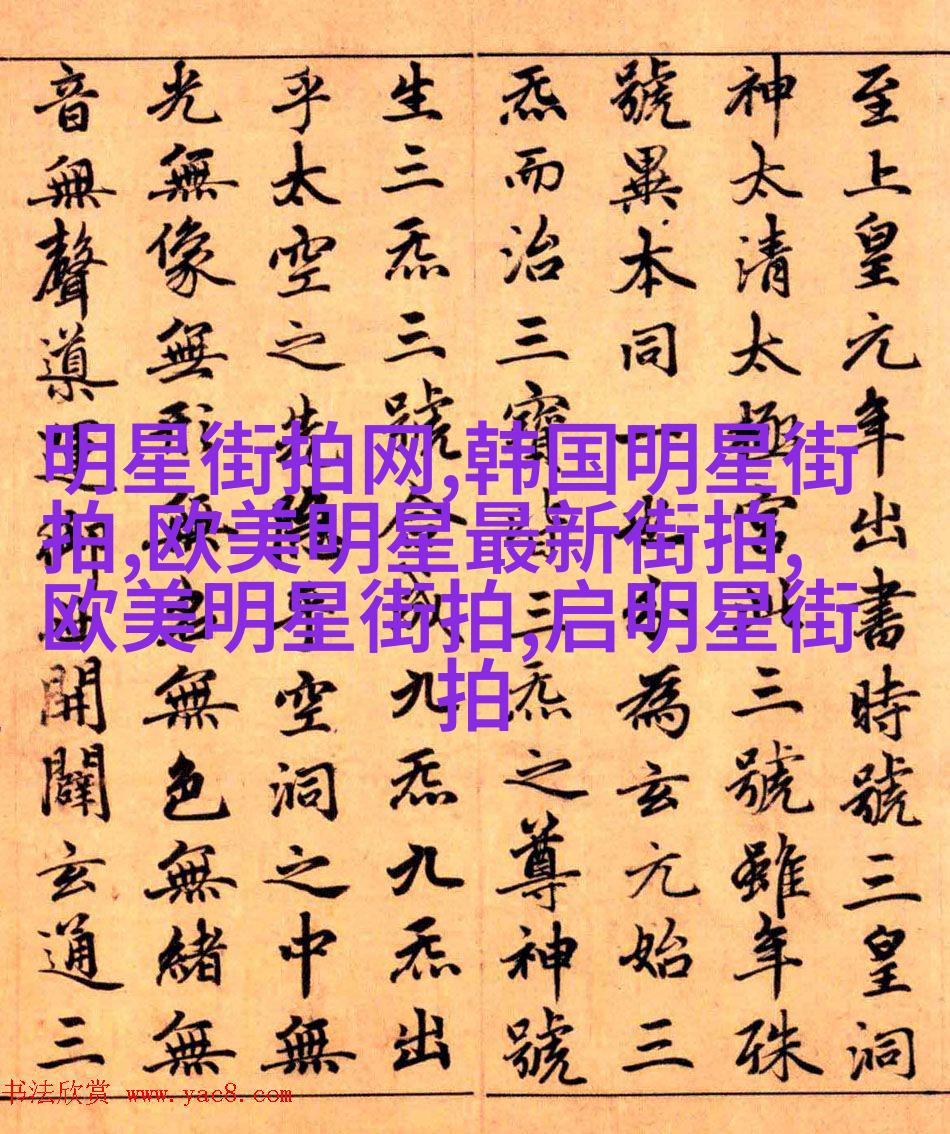 至上皇元年出書時號三皇洞
神太清太極宮此三號雖年殊
號異本同一也分為玄元始三
炁而治三寶皆三炁之尊神號
生三炁三號合成九炁九炁出
乎太空之先隱乎空洞之中無
光無像無形無名無色無緒無
音無聲導運御世開闢玄通三
明星街拍网,韩国明星街
拍,欧美明星最新街拍,
欧美明星街拍,启明星街
拍
书法欣赏 www.yac8.com